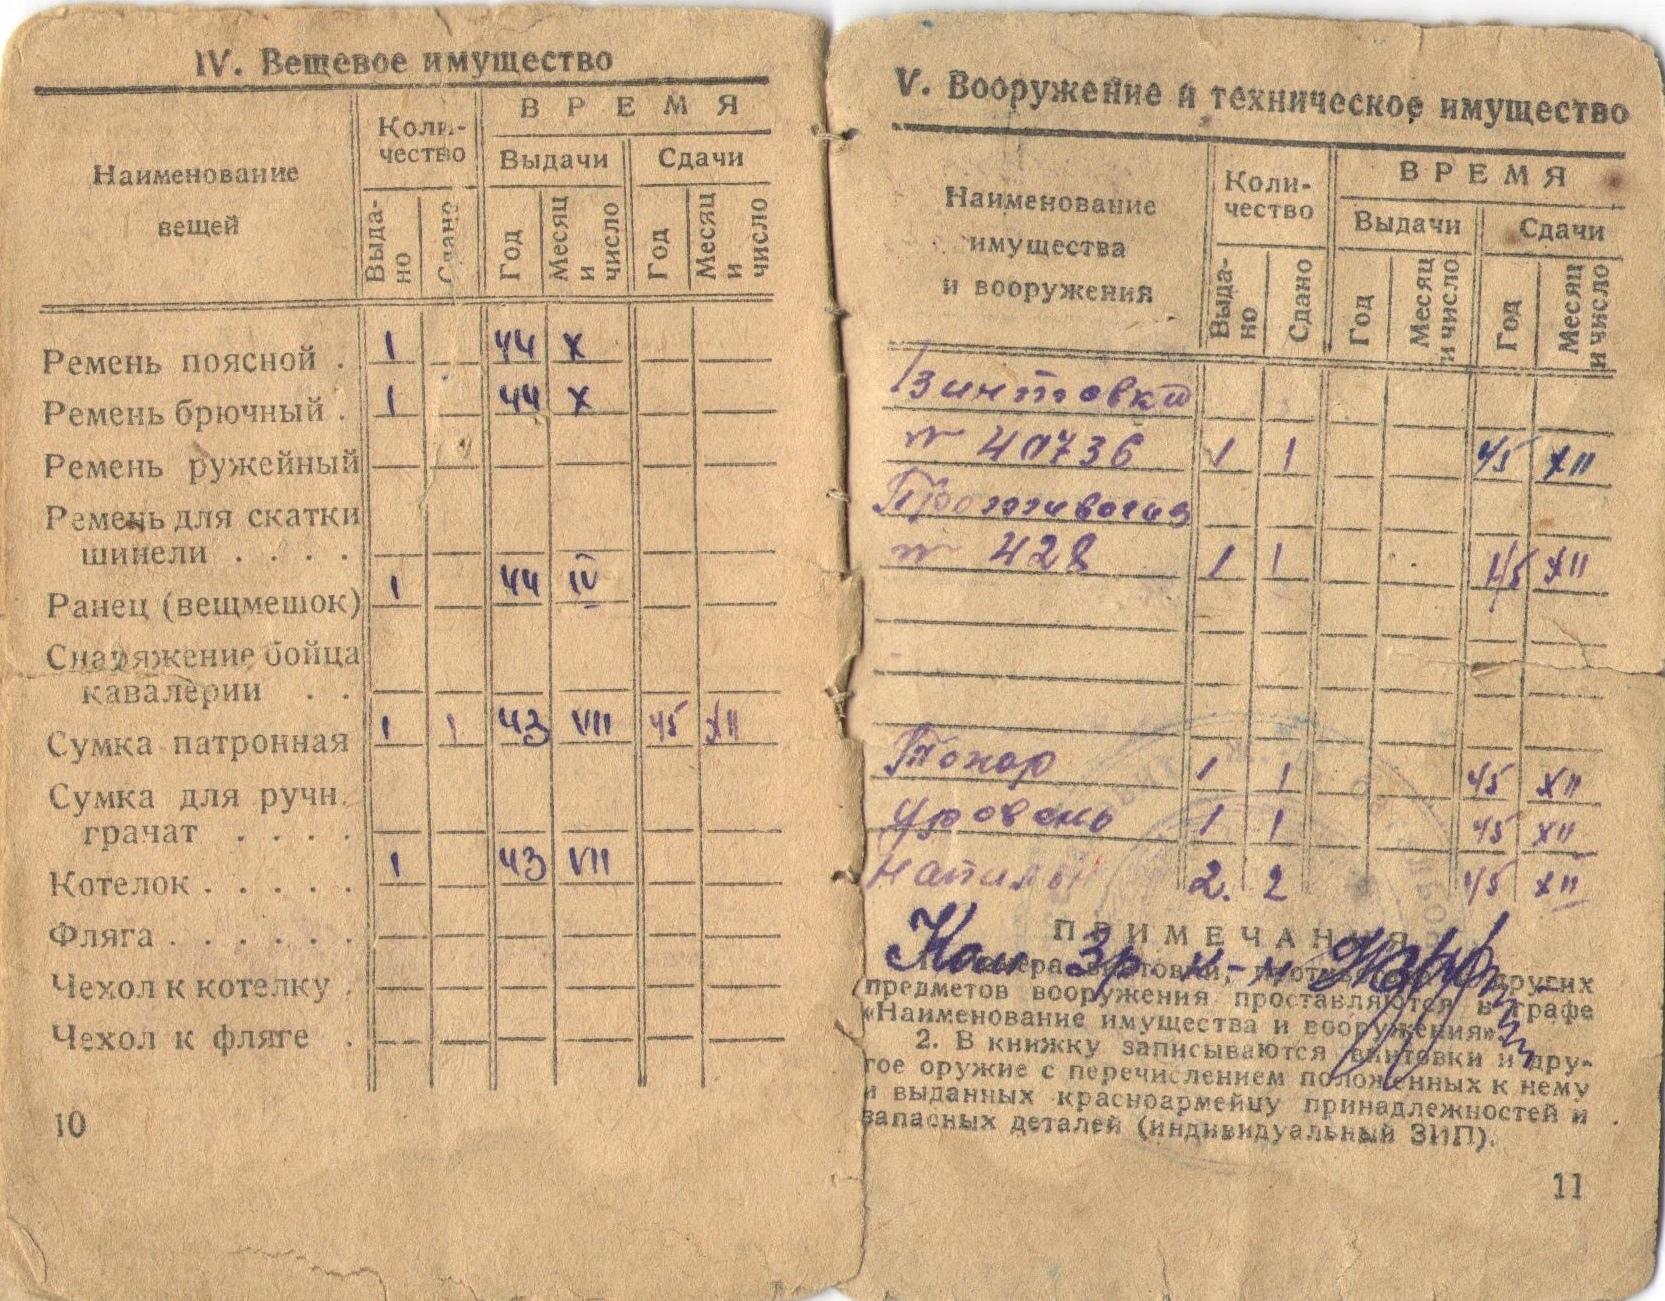 IV. Вещевое имущество
Наименование вещей
Коли-
чество
ВРЕМЯ
Выдачи
Сдачи
Выда-
но
Сдано
Год
Месяц
и
число
Год
Месяц
и
число
Ремень поясной . 1 44 X
Ремень брючный . 1 44 X
Ремень ружейный
Ремень для скатки
шинели . . . .
Ранец (вещмешок) 1 44 IV
Снаряжение бойца
кавалерии . .
Сумка патронная 1 1 43 VII 45 XII
Сумка для ручн.
грачат . . . .
Котелок . . . . . 1 43 VII
Фляга . . . . . .
Чехол к котелку .
Чехол к фляге .
10
V. Вооружение и техническое имущество
Наименование
имущества
и вооружения
Коли-
чество
ВРЕМЯ
Выдачи
Сдачи
Выда-
но
Сдано
Год
Месяц
и число
Год
Месяц
и число
Винтовка
№ 40736 1 1 45 XII
Противогаз
№ 428 1 1 45 XII
Топор 1 1 45 XII
Уровень 1 1 45 XII
Напильн 2. 2 45 XII
ПРИМЕЧАНИЯ
Ком Зр
1. Номера винтовки, противогаза и других
предметов вооружения проставляются в графе
«Наименование имущества и вооружения».
2. В книжку записываются винтовки и дру-
гое оружие с перечислением положенных к нему
и выданных красноармейцу принадлежностей и
запасных деталей (индивидуальный ЗИП).
11